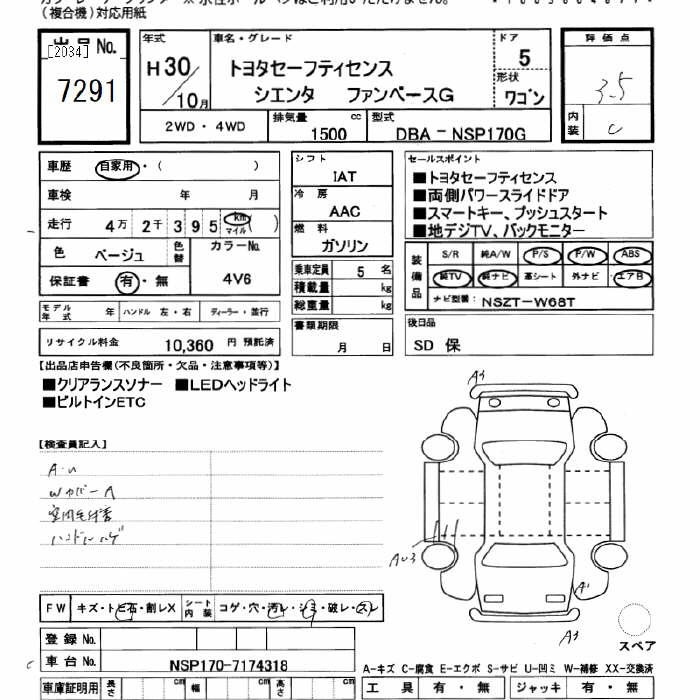 (複合機)対応用紙
出品No.
[2034]
7291
年式
H30/10月
車名・グレード
トヨタセーフティセンス
シエンタ ファンベースG
ドア
5
形状
ワゴン
評価点
3.5
内装
C
2WD・4WD
排気量
1500 cc
型式
DBA-NSP170G
車歴 自家用・( )
車検 年 月
走行 4万 2千 3 9 5 km マイル ( )
色 ベージュ 色替 カラーNo.
4V6
保証書 有・無
モデル年式 年 ハンドル 左・右 ディーラー・並行
リサイクル料金 10,360 円 預託済
シフト
IAT
冷房
AAC
燃料
ガソリン
乗車定員 5 名
積載量 kg
総重量 kg
書類期限
月 日
セールスポイント
■トヨタセーフティセンス
■両側パワースライドドア
■スマートキー、プッシュスタート
■地デジTV、バックモニター
装備品
S/R 純A/W P/S P/W ABS
純TV 純ナビ 革シート 外ナビ エアB
ナビ型番: NSZT-W68T
後日品
SD 保
【出品店申告欄(不良箇所・欠品・注意事項等)】
■クリアランスソナー ■LEDヘッドライト
■ビルトインETC
【検査員記入】
A・U
Wカバー A
室内毛付着
ハンドルハゲ
A4
AU3
A1
A3
スペア
FW キズ・トビ石・割レX シート内装 コゲ・穴・汚レ・シミ・破レ・スレ
登録No.
車台No. NSP170-7174318
車庫証明用 長さ cm 幅 cm 高さ cm
A-キズ C-腐食 E-エクボ S-サビ U-凹ミ W-補修 XX-交換済
工具 有・無 ジャッキ 有・無